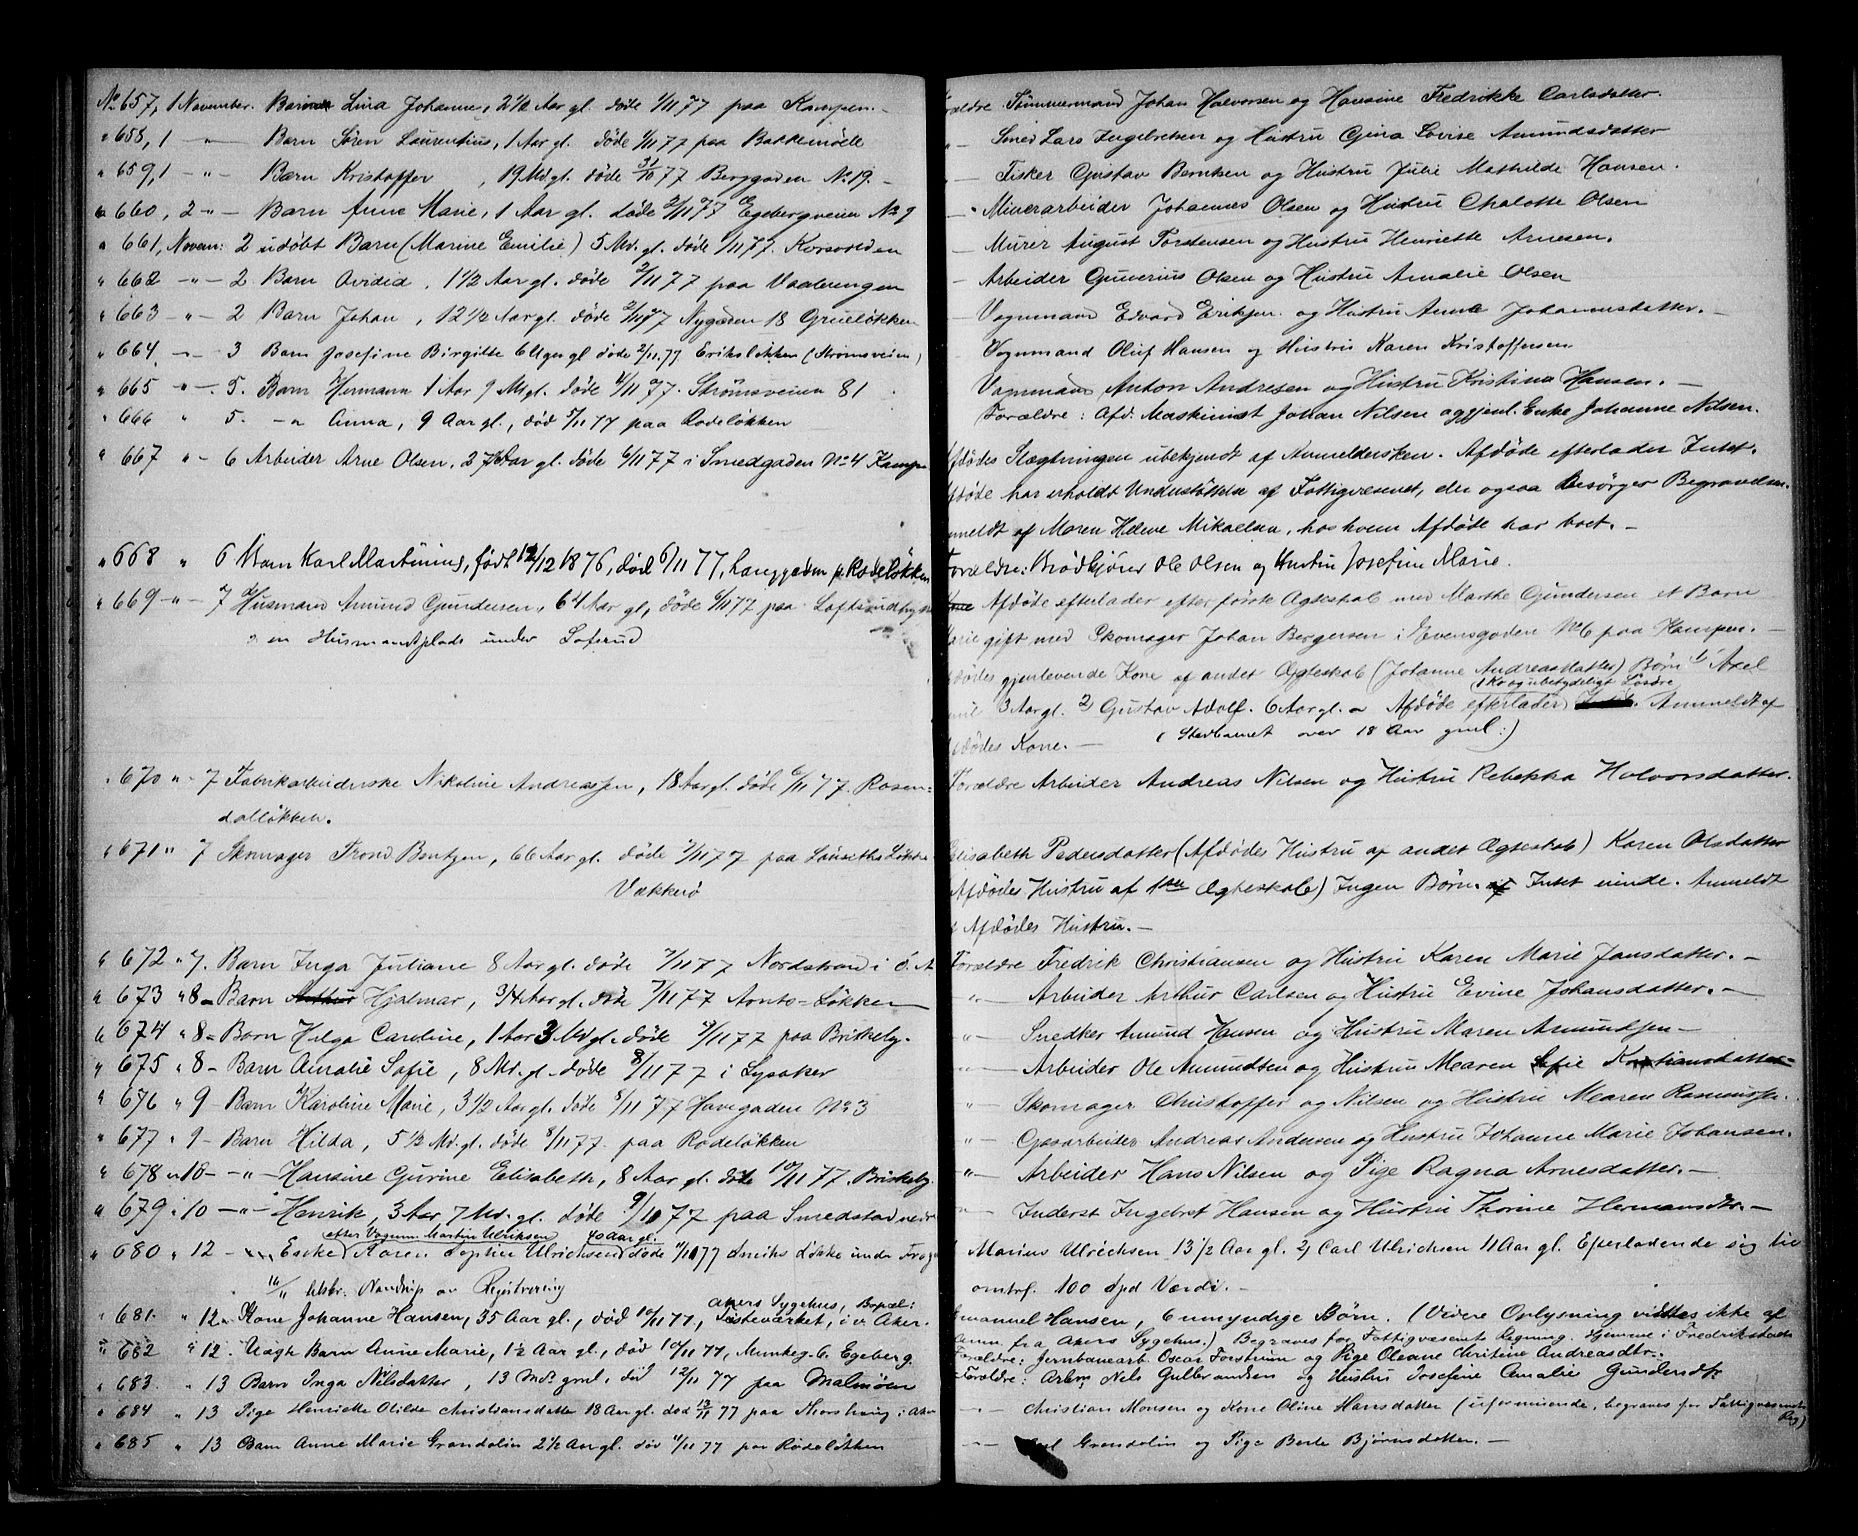 No 657, 1 November. Barn Lina Johanne, 2 1/2 Aar gl. døde 1/11 77 paa Kampen.
" 658, 1 " — Barn Søren Laurentius, 1 Aar gl. døde 1/11 77 paa Bakkemølle
" 659, 1 — " — Barn Kristoffer, 19 Md. gl. døde 31/10 77 Berggaden No 19. —
" 660, 2 — " — Barn Anne Marie, 1 Aar gl. døde 2/11 77 Egebergveien No 9
" 661, Novem: 2 udøbt Barn (Marine Emilie) 5 Md. gl. døde 1/11 77. Korsvolden
" 662 — " — 2 Barn 1 1/2 Aar gl. døde 2/11 77 paa Vaalerengen
" 663 — " — 2 Barn Johan, 12 1/2 Aar gl. døde 2/11 77 Nygaden 18 Grueløkken
" 664 — " — 3 Barn Josefine Birgitte 6 Uger gl døde 2/11 77 Eriksløkken (Strømsveien)
" 665 " —. 5. Barn Hermann 1 Aar 9 Md. gl. døde 4/11 77. Strømsveien 81
" 666 " 5. — " Anna, 9 Aar gl., død 5/11 77 paa Rodeløkken
" 667 " — 6 Arbeider Arne Olsen, Aar gl. døde 6/11 77 i Smedgaden No 4 Kampen
" 668 " 6 Barn Karl Martinius, født 12/12 1876, død 6/11 77, Langgaden p. Rodeløkken
" 669 — " — 7 Husmand Amund Gundersen, 64 Aar gl, døde 6/11 77 paa
" en Husmandsplads under Loferud
" 670 " - 7 Fabrikarbeiderske Nikoline Andreassen, 18 Aar gl. døde 6/11 77. Rosen=
dalløkken.
" 671 " 7 Skomager Trond Bentzen, 66 Aar gl. døde 7/11 77 paa
Vækkerø
" 672 " 7. Barn Inga Juliane 8 Aar gl. døde 7/11 77 Nordstrand i Ø. A
" 673 " 8 — Barn Hjalmar, 3/4 Aar gl. døde 7/11 77 Arnts-Løkken
" 674 " 8 - Barn Helga Caroline, 1 Aar 3 Md gl. døde 7/11 77 paa Briskeby.
" 675 " 8 — Barn Amalie Sofie, 8 Md. gl. døde 8/11 77 i Lysaker
" 676 " 9 — Barn Karoline Marie, 3 1/2 Aar gl. døde 8/11 77 Havegaden No 3
" 677 " 9 — Barn Hilda, 5 1/3 Md. gl. døde 8/11 77. paa Rodeløkken
" 678 " 10 — " — Hansine Gurine Elisabeth, 8 Aar gl. døde 10/11 77. Briskeby.
" 679 " 10 — " — Henrik, 3 Aar 7 Md. gl. døde 9/10 77 paa Smedstad nedr
efter Vognm. Martin Ulriksen 40 Aar gl.
" 680 " 12 — Enke Karen Sophie Ulrichsen døde 11/11 77 Løkke under Frog
16/11 tilskr. Nandrup om Registrering
" 681. " 12 " Kone Johanne Hansen, 35 Aar gl., død 10/11 77, Akers Sygehus, Bopæl:
i v. Aker.
" 682 " 12. Uægte Barn Anne Marie, 1 1/2 Aar gl., død 10/11 77, Munkeg. 6. Egeberg.
" 683 " 13 Barn Inga Nilsdatter, 13 Md. gml, død 12/11 77 paa Malmøen
" 684 " 13 Pige Henriette Otilde Christiansdatter 18 Aar gl. død 12/11 77 paa Thorshaug i Aker
" 685 " 13 Barn Anne Marie Grøndolin 2 1/2 Aar gl. død 11/11 77 paa Rødeløkken
Forældre Tømmermand Johan Halvorsen og Hansine Fredrikke Carlsdatter.
— Smed Lars Ingebretsen og Hustru Gina Lovise Amundsdatter
— Fisker Gustav Berntsen og Hustru Julie Mathilde Hansen.
— Minerarbeider Johannes Olsen og Hustru Chalotte Olsen
— Murer August Torstensen og Hustru Henriette Arnesen.
— Arbeider Gunerius Olsen og Hustru Amalie Olsen
— Vognmand Edvard Eriksen og Hustru Anne Johannesdatter. —
Vognmand Oluf Hansen og Hustru Karen Kristoffersen
Vognmand Anton Andresen og Hustru Kristina Hansen. —
Forældre: Afd. Maskinist Johan Nilsen og gjenl. Enke Johanne Nilsen.
Afdødes Slægtningen ubekjendt af Anmeldersken. Afdøde efterlader Intet.
Afdøde har erholdt Understøttelse af Fattigvæsenet, der ogsaa besørger Begravelsen.
Anmeldt af Maren Helene Mikaelsen, hos hvem Afdøde har boet. —
Forældre: Brødkjører Ole Olsen og Hustru Josefine Marie.
Afdøde efterlader efter første Ægteskab med Marthe Gundersen et Barn
Marie gift med Skomager Johan Bergersen i Evensgaden No 6 paa Kampen. —
Afdødes gjenlevende Kone af andet Ægteskab (Johanne Andreasdatter) Børn 1) Axel
1 Ko og ubetydeligt Løsøre
Emil 3 Aar gl. 2) Gustav Adolf. 6 Aar gl. — Afdøde efterlader Anmeldt af
Afdødes Kone. — (Stervboret over 18 Aar gml:)
Forældre Arbeider Andreas Nilsen og Hustru Rebekka Holvorsdatter.
Elisabeth Pedersdatter (Afdødes Hustru af andet Ægteskab) Karen Olsdatter
(Afdødes Hustru af 1ste Ægteskab) Ingen Børn. Intet eiende. Anmeldt
af Afdødes Hustru. —
Forældre Fredrik Christiansen og Hustru Karen Marie Jansdatter. —
" — Arbeider Arthur Carlsen og Hustru Evine Johansdatter. —
" — Snedker Amund Hansen og Hustru Maren Amundsen —
" — Arbeider Ole Amundsen og Hustru Maren Sofie Kristiansdatter
" — Skomager Christoffer og Nilsen og Hustru Maren Rasmussen.
" — Gasarbeider Andreas Andersen og Hustru Johanne Marie Johansen.
" — Arbeider Hans Nilsen og Pige Ragna Arnesdatter. —
" — Inderst Ingebret Hansen og Hustru Thorine Hermansdtr. —
1) Marius Ulrichsen 13 1/2 Aar gl. 2) Carl Ulrichsen 11 Aar gl. Efterladende sig til
omtrf. 100 Spd Værdi. —
Emanuel Hansen, 6 umyndige Børn. (Videre Oplysning vidstes ikke af
Anm. fra Akers Sygehus.) Begraves for Fattigvæsenets Regning. Hjemme i Fredrikstad
Forældre: Jernbanearb. Oscar Forstrøm og Pige Oleane Christine Andreasdtr.
Forældre: Arbm. Nils Gulbrandsen og Hustru Josefine Amalie Gundersdtr
" — Christian Monsen og Kone Oline Hansdatter (uformuende, begraves for Fattigvæsenets
Rg)
— Grøndolin og Pige Berte Bjørnsdatter. —